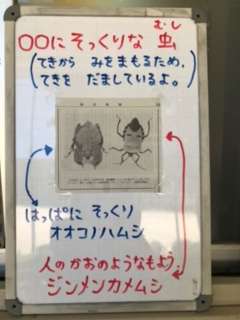 むし
○○に そっくりな 虫
(てきから みをまもるため、
てきを だましているよ。)
はっぱに そっくり
オオコノハムシ
人のかおのようなもよう。
ジンメンカメムシ